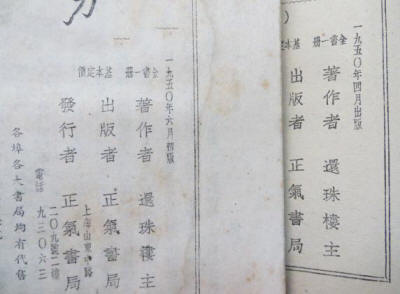 一九五〇年四月出版
全書一冊 基本
著作者 還珠樓主
出版者 正氣書局
一九五〇年六月初版
全書一冊 基本定價
著作者 還珠樓主
出版者 正氣書局
上海山東中路
二〇九號二樓
發行者 正氣書局
電話
九三〇六三
各埠各大書局均有代售